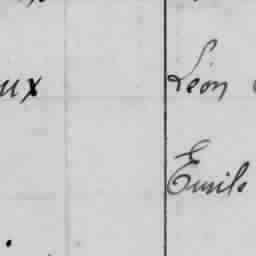 ux Léon
Emile